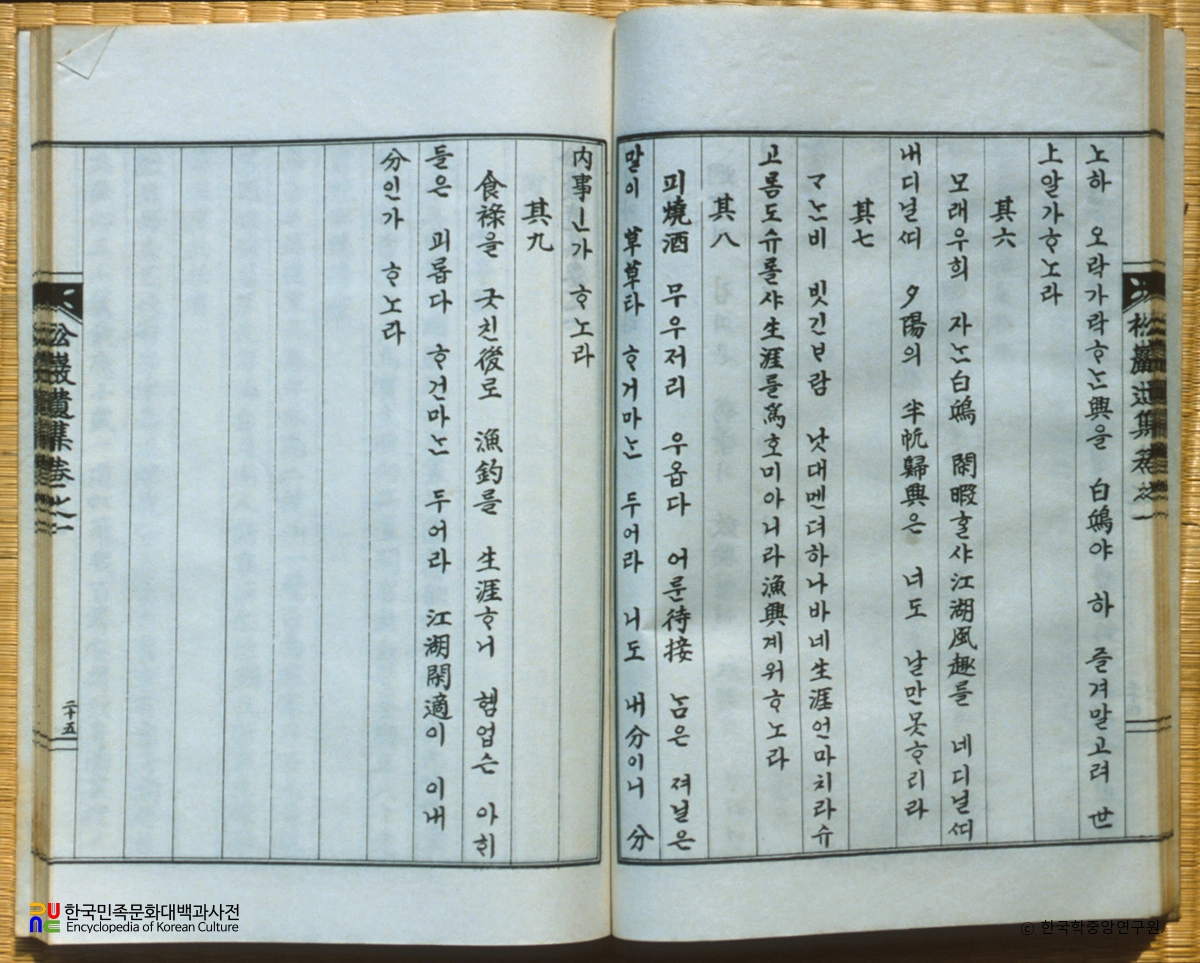 노하 오락가락ᄒᆞᄂᆞᆫ興을 白鷗야 하 즐겨말고려 世
上알가ᄒᆞ노라
其六
모래우희 자ᄂᆞᆫ白鷗 閑暇ᄒᆞᆯ샤江湖風趣를 네디닐ᄯᅵ
내디닐ᄯᅵ 夕陽의 半帆歸興은 너도 날만못ᄒᆞ리라
其七
ᄀᆞᄂᆞᆫ비 빗긴ᄇᆞ람 낫대멘뎌하나바네生涯언마치라슈
고롬도슈롤샤生涯를爲호미아니라漁興계워ᄒᆞ노라
其八
피燒酒 무우저리 우옵다 어룬待接 ᄂᆞᆷ은 져닐은
말이 草草타 ᄒᆞ거마ᄂᆞᆫ 두어라 니도 내分이니 分
內事ᅵᆫ가 ᄒᆞ노라
其九
食祿을 긋친後로 漁釣를 生涯ᄒᆞ니 혬업슨 아ᄒᆡ
들은 괴롭다 ᄒᆞ건마ᄂᆞᆫ 두어라 江湖閑適이 이내
分인가 ᄒᆞ노라
松巖遺集卷之一
松巖遺集卷之一
二十五
한국민족문화대백과사전
Encyclopedia of Korean Culture
© 한국학중앙연구원